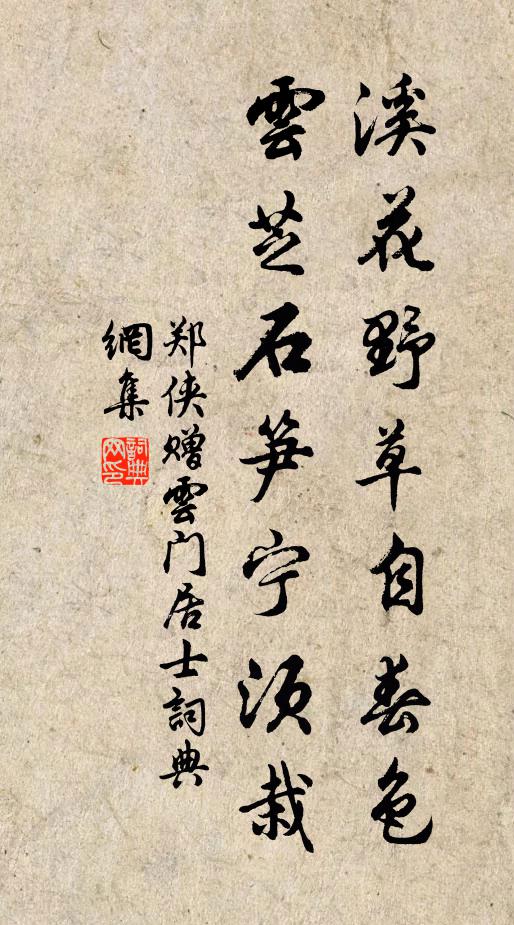 溪花野草自春色
雲芝石笋宁須栽
郑侠赠雲门居士詞典
網集
詞典
网印